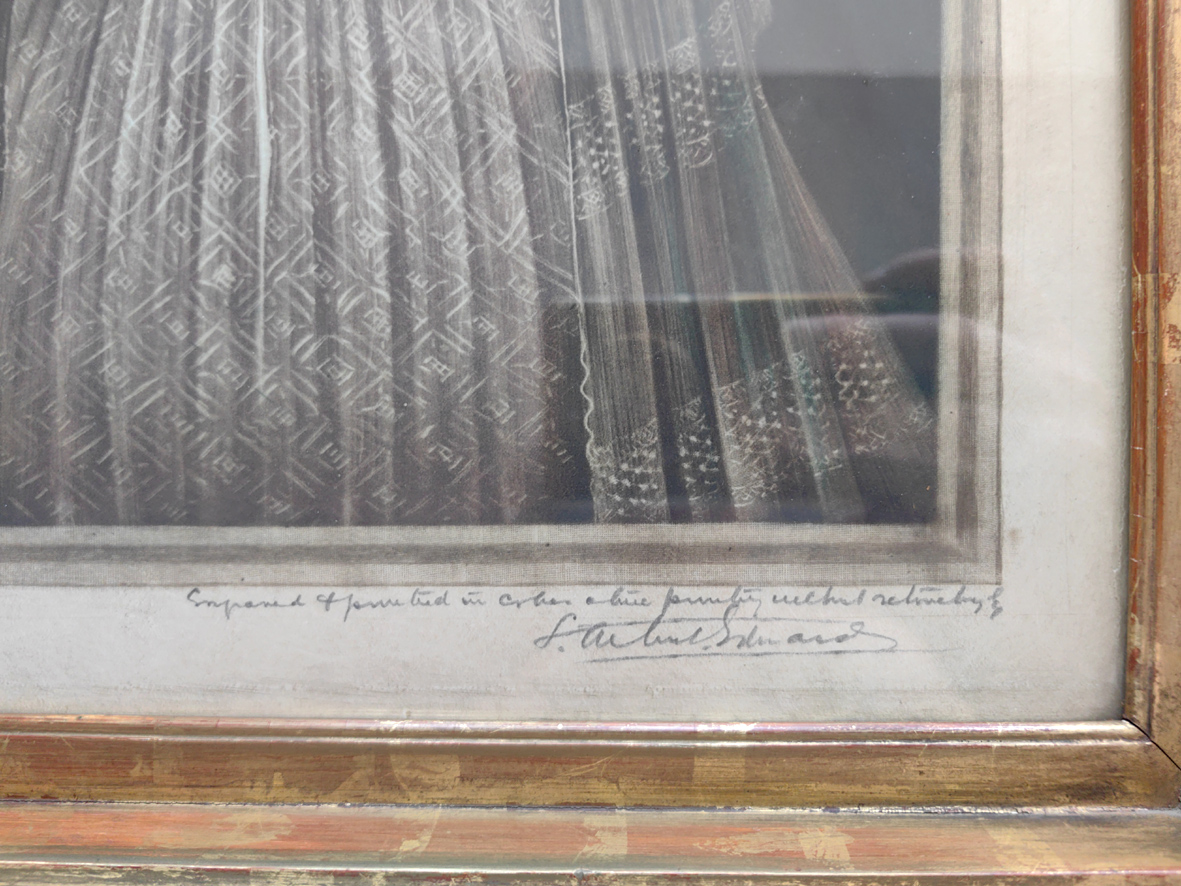 Engraved & printed in colour at one printing without retouching by
S. Arlent Edwards